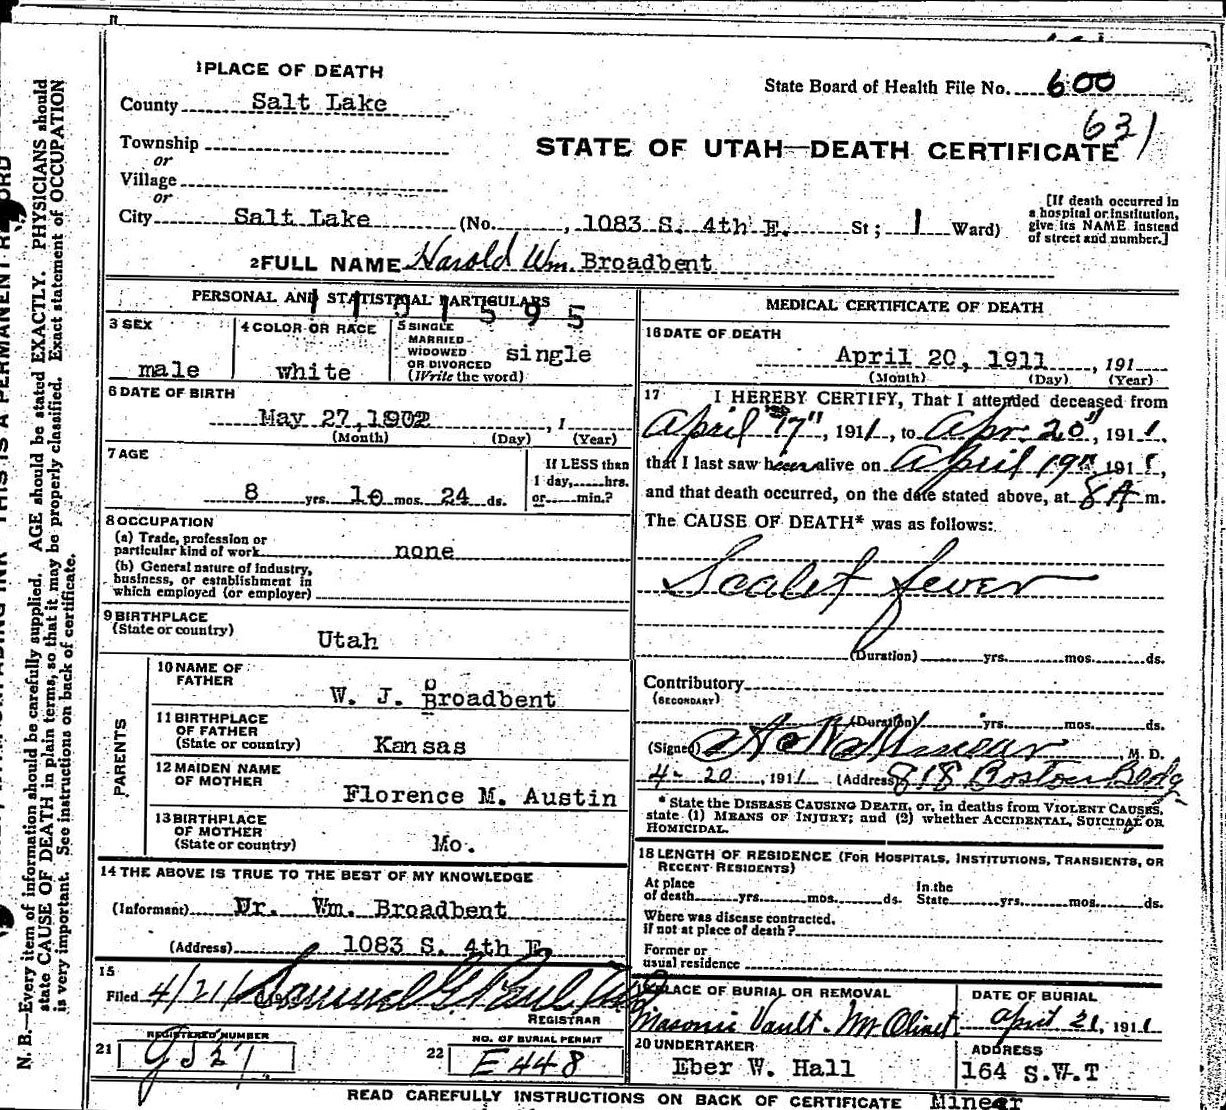 1 PLACE OF DEATH
County Salt Lake
State Board of Health File No. 600
631
Township
or
Village
or
STATE OF UTAH—DEATH CERTIFICATE
City Salt Lake (No. , 1083 S. 4th E. St ; 1 Ward)
[If death occurred in
a hospital or institution,
give its NAME instead
of street and number.]
2 FULL NAME Harold Wm. Broadbent
PERSONAL AND STATISTICAL PARTICULARS
1101595
3 SEX
male
4 COLOR OR RACE
white
5 SINGLE
MARRIED
WIDOWED
OR DIVORCED
(Write the word)
single
6 DATE OF BIRTH
May 27, 1902 , 1
(Month) (Day) (Year)
7 AGE
8 yrs. 10 mos. 24 ds.
If LESS than
1 day, hrs.
or min.?
8 OCCUPATION
(a) Trade, profession or
particular kind of work none
(b) General nature of industry,
business, or establishment in
which employed (or employer)
9 BIRTHPLACE
(State or country)
Utah
PARENTS
10 NAME OF
FATHER
W. J. Broadbent
11 BIRTHPLACE
OF FATHER
(State or country) Kansas
12 MAIDEN NAME
OF MOTHER
Florence M. Austin
13 BIRTHPLACE
OF MOTHER
(State or country) Mo.
14 THE ABOVE IS TRUE TO THE BEST OF MY KNOWLEDGE
(Informant) Dr. Wm. Broadbent
(Address) 1083 S. 4th E
15
Filed 4/21/ Samuel G. Paul
REGISTRAR
REGISTERED NUMBER
21 GJ27
NO. OF BURIAL PERMIT
22 E448
MEDICAL CERTIFICATE OF DEATH
16 DATE OF DEATH
April 20, 1911 , 191
(Month) (Day) (Year)
17 I HEREBY CERTIFY, That I attended deceased from
April 17", 1911, to Apr. 20", 1911,
that I last saw alive on April 19" 1911,
and that death occurred, on the date stated above, at 8 A m.
The CAUSE OF DEATH* was as follows:
Scalet fever
(Duration) yrs. mos. ds.
Contributory
(SECONDARY)
(Duration) yrs. mos. ds.
(Signed) M. D.
4-20, 1911 (Address) 818 Boston Bldg
* State the DISEASE CAUSING DEATH, or, in deaths from VIOLENT CAUSES,
state (1) MEANS OF INJURY; and (2) whether ACCIDENTAL, SUICIDAL OR
HOMICIDAL.
18 LENGTH OF RESIDENCE (FOR HOSPITALS, INSTITUTIONS, TRANSIENTS, OR
RECENT RESIDENTS)
At place
of death yrs. mos. ds.
In the
State yrs. mos. ds.
Where was disease contracted.
if not at place of death?
Former or
usual residence
PLACE OF BURIAL OR REMOVAL
Masonic Vault. Mt Olivet
DATE OF BURIAL
April 21, 1911
20 UNDERTAKER
Eber W. Hall
ADDRESS
164 S.W.T
READ CAREFULLY INSTRUCTIONS ON BACK OF CERTIFICATE Minear
THIS IS A PERMANENT
N. B.—Every item of information should be carefully supplied. AGE should be stated EXACTLY. PHYSICIANS should
state CAUSE OF DEATH in plain terms, so that it may be properly classified. Exact statement of OCCUPATION
is very important. See instructions on back of certificate.